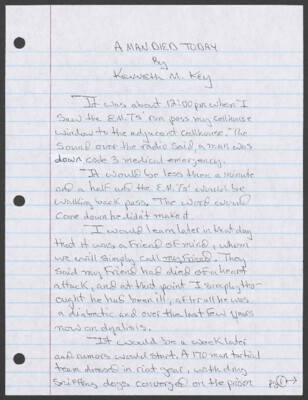 A MAN DIED TODAY
By
Kenneth M. Key
It was about 12:00pm when I
saw the E.M.Ts' run pass my cellhouse
window to the adjacent cellhouse. The
sound over the radio said, a man was
down code 3 medical emergency.
It would be less then a minute
and a half and the E.M.Ts' would be
walking back pass. The word would
come down he didn't make it.
I would learn later in that day
that it was a friend of mind, whom
we will simply call my friend. They
said my friend had died of a heart
attack, and at that point I simply tho-
ught he had been ill, after all he was
a diabetic and over the last few years
now on dyalisis.
It would be a week later
and rumors would start. A 170 man tactical
team dressed in riot gear, with drug
sniffing dogs converged on the prison
Pg 1 →